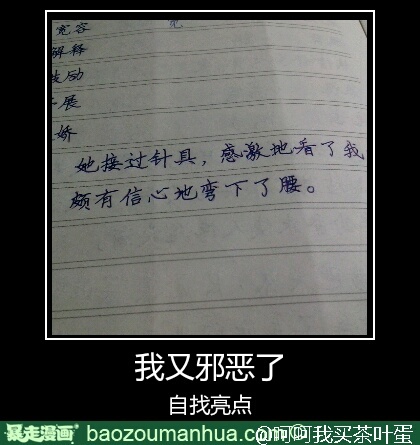 宽容
解释
励
展
娇
她接过针具，感激地看了我
颇有信心地弯下了腰。
我又邪恶了
自找亮点
暴走漫画 baozoumanhua.com @呵呵我买茶叶蛋